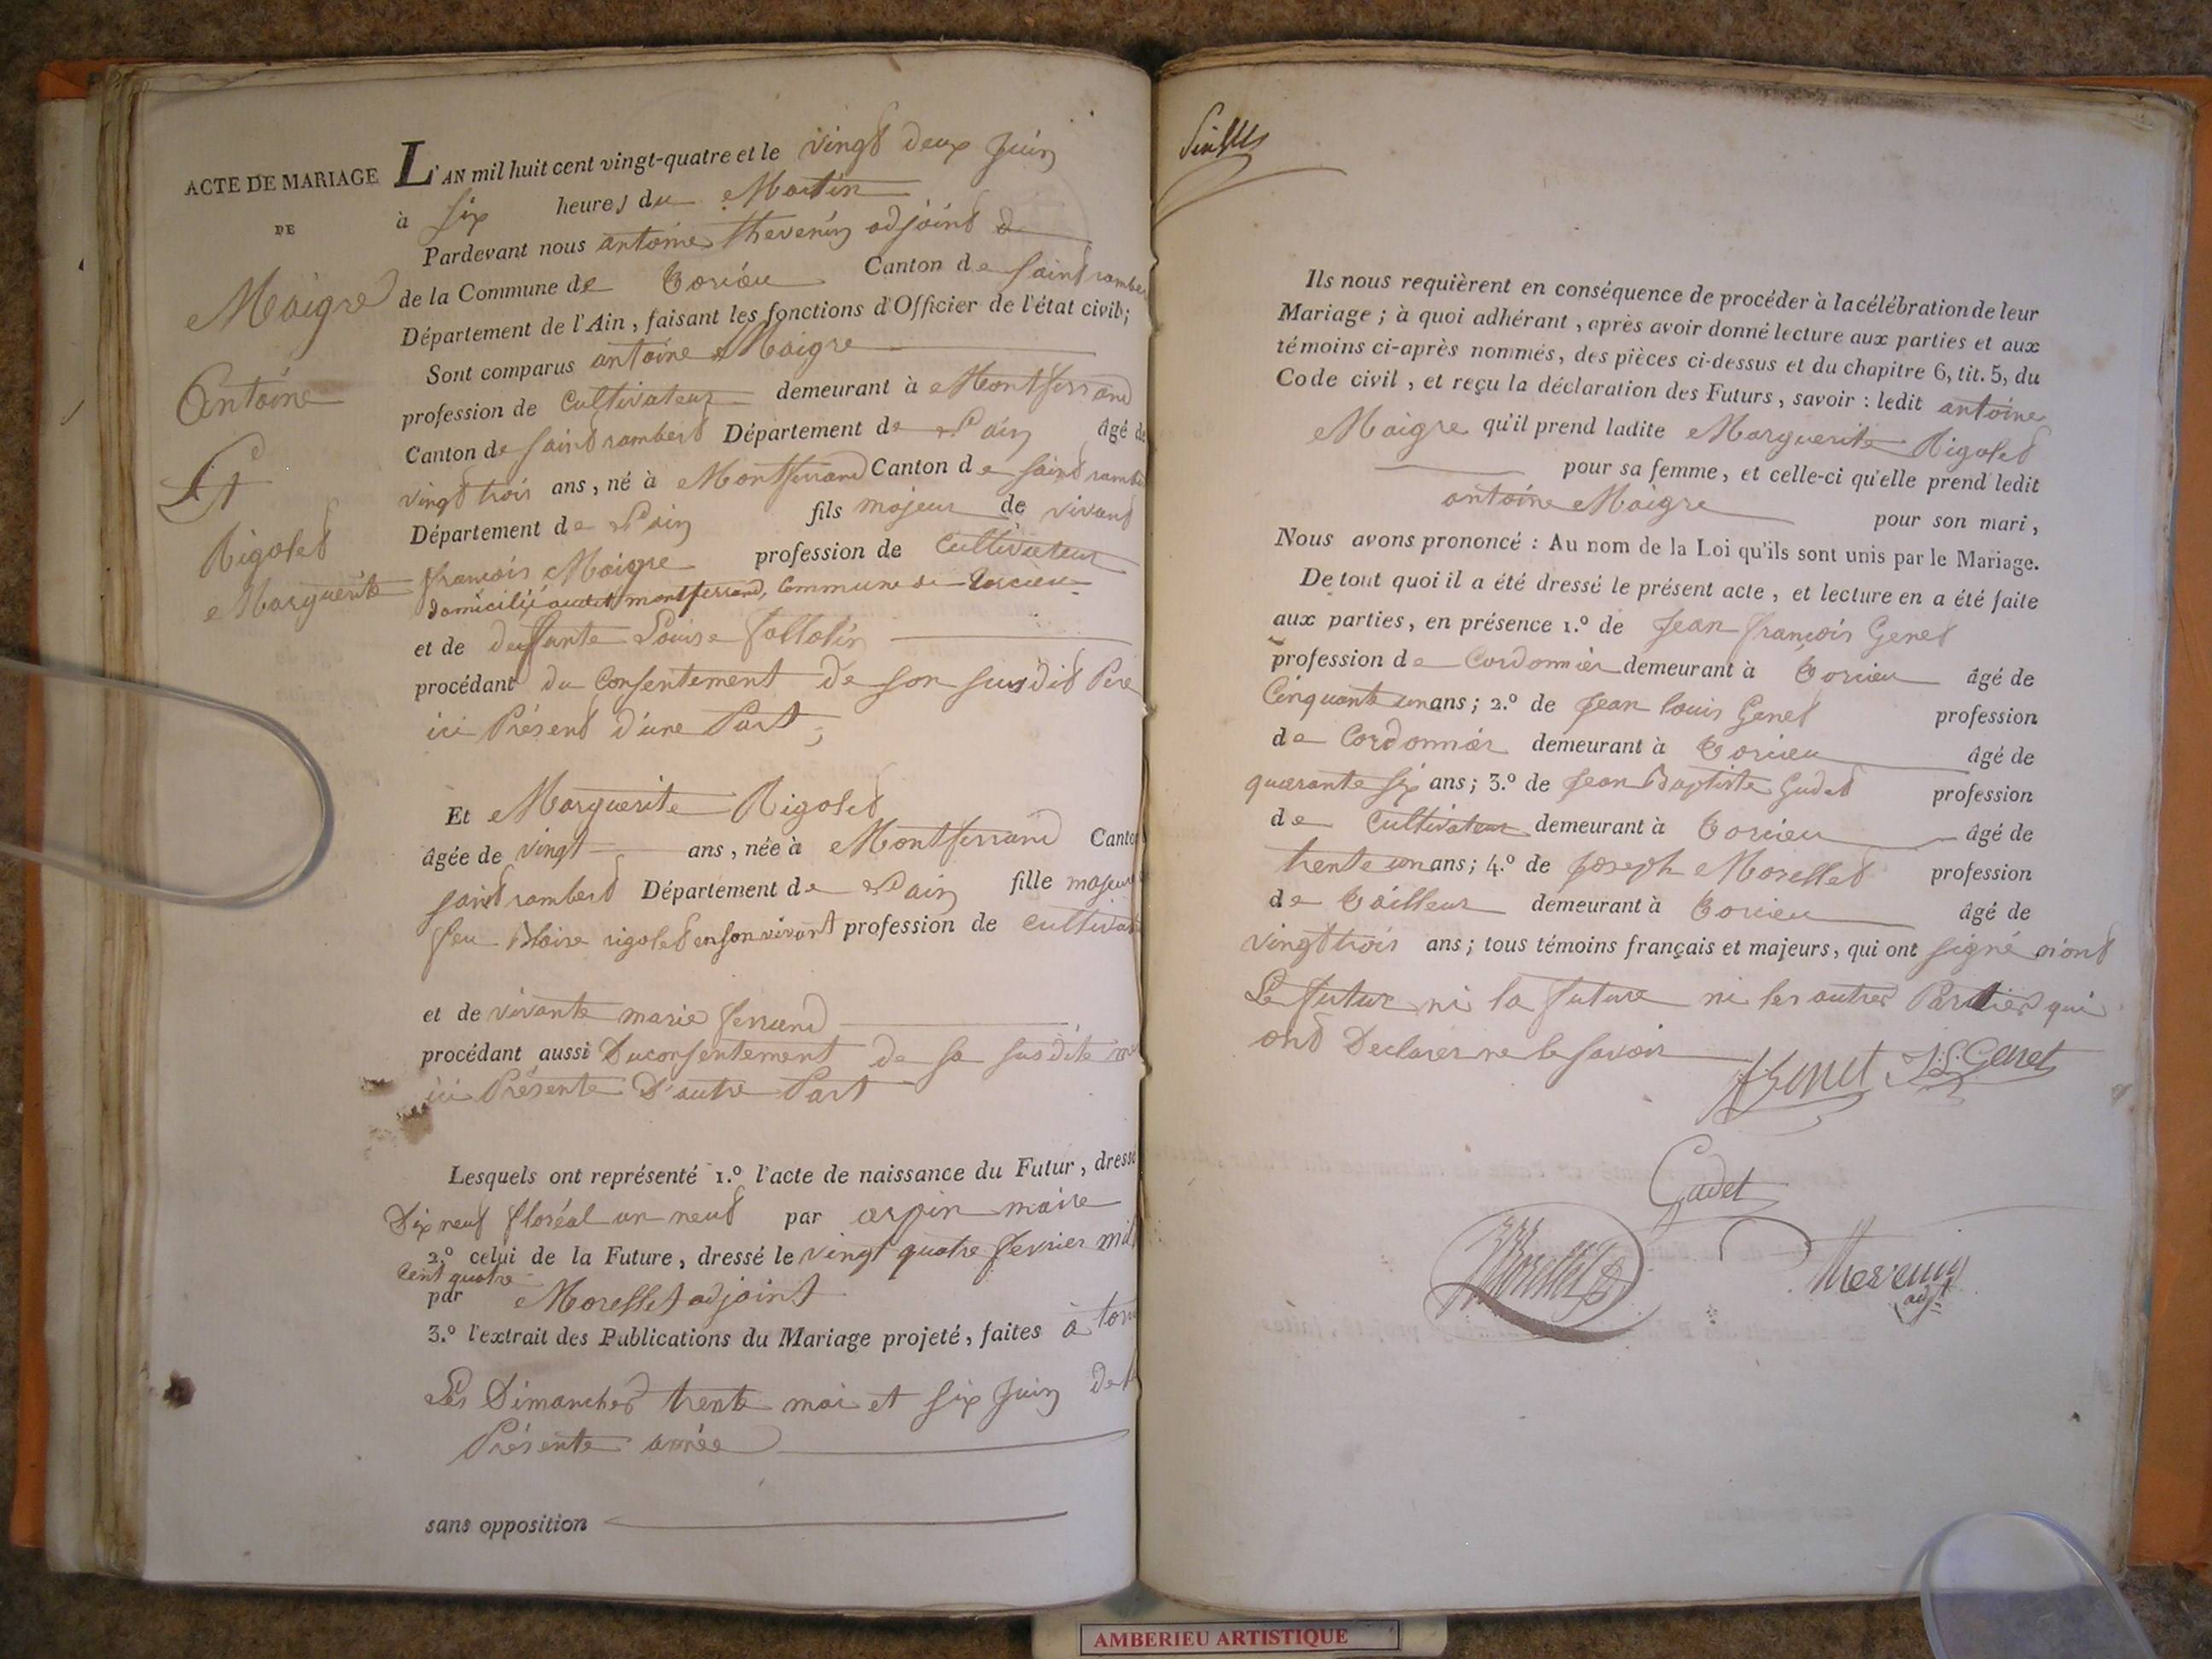 ACTE DE MARIAGE
DE
Maigre
Antoine
Et
Rigolet
Marguerite
L'AN mil huit cent vingt-quatre et le vingt deux juin
à six heures du Matin
Pardevant nous antoine thevenin adjoint
de la Commune de torcieu Canton de saint rambert
Département de l'Ain, faisant les fonctions d'Officier de l'état civil;
Sont comparus antoine Maigre
profession de Cultivateur demeurant à Montferrand
Canton de saint rambert Département de L'ain âgé de
vingt trois ans, né à Montferrand Canton de saint rambert
Département de L'ain fils majeur de vivant
françois Maigre profession de Cultivateur
domicilié audit montferrand, Commune de torcieu
et de deffunte Louise
procédant du Consentement de son susdit Pere
ici Présent d'une Part;
Et Marguerite Rigolet
âgée de vingt ans, née à Montferrand Canton
saint rambert Département de L'ain fille majeure
feu Blaise rigolet en son vivant profession de cultivateur
et de vivante marie ferrand
procédant aussi Du consentement de sa susdite mere
ici Présente D'autre Part
Lesquels ont représenté 1.º l'acte de naissance du Futur, dressé
Dix neuf floréal an neuf par arpin maire
2.º celui de la Future, dressé le vingt quatre fevrier mil
cent quatre
par Morellet adjoint
3.º l'extrait des Publications du Mariage projeté, faites à
Les Dimanches trente mai et six juin
Présente année
sans opposition
Ils nous requièrent en conséquence de procéder à la célébration de leur
Mariage; à quoi adhérant, après avoir donné lecture aux parties et aux
témoins ci-après nommés, des pièces ci-dessus et du chapitre 6, tit. 5, du
Code civil, et reçu la déclaration des Futurs, savoir: ledit antoine
Maigre qu'il prend ladite Marguerite Rigolet
pour sa femme, et celle-ci qu'elle prend ledit
antoine Maigre pour son mari,
Nous avons prononcé: Au nom de la Loi qu'ils sont unis par le Mariage.
De tout quoi il a été dressé le présent acte, et lecture en a été faite
aux parties, en présence 1.º de Jean françois Genet
profession de Cordonnier demeurant à torcieu âgé de
Cinquante un ans; 2.º de Jean louis Genet profession
de Cordonnier demeurant à torcieu âgé de
quarante six ans; 3.º de Jean Baptiste Gudet profession
de Cultivateur demeurant à torcieu âgé de
trente un ans; 4.º de Joseph Morellet profession
de tailleur demeurant à torcieu âgé de
vingt trois ans; tous témoins français et majeurs, qui ont signé n'ont
Le futur ni la future ni les autres Parties qui
ont Declarer ne le savoir
Genet J. L. Genet
Gudet
Morellet Thevenin
adjt
AMBERIEU ARTISTIQUE